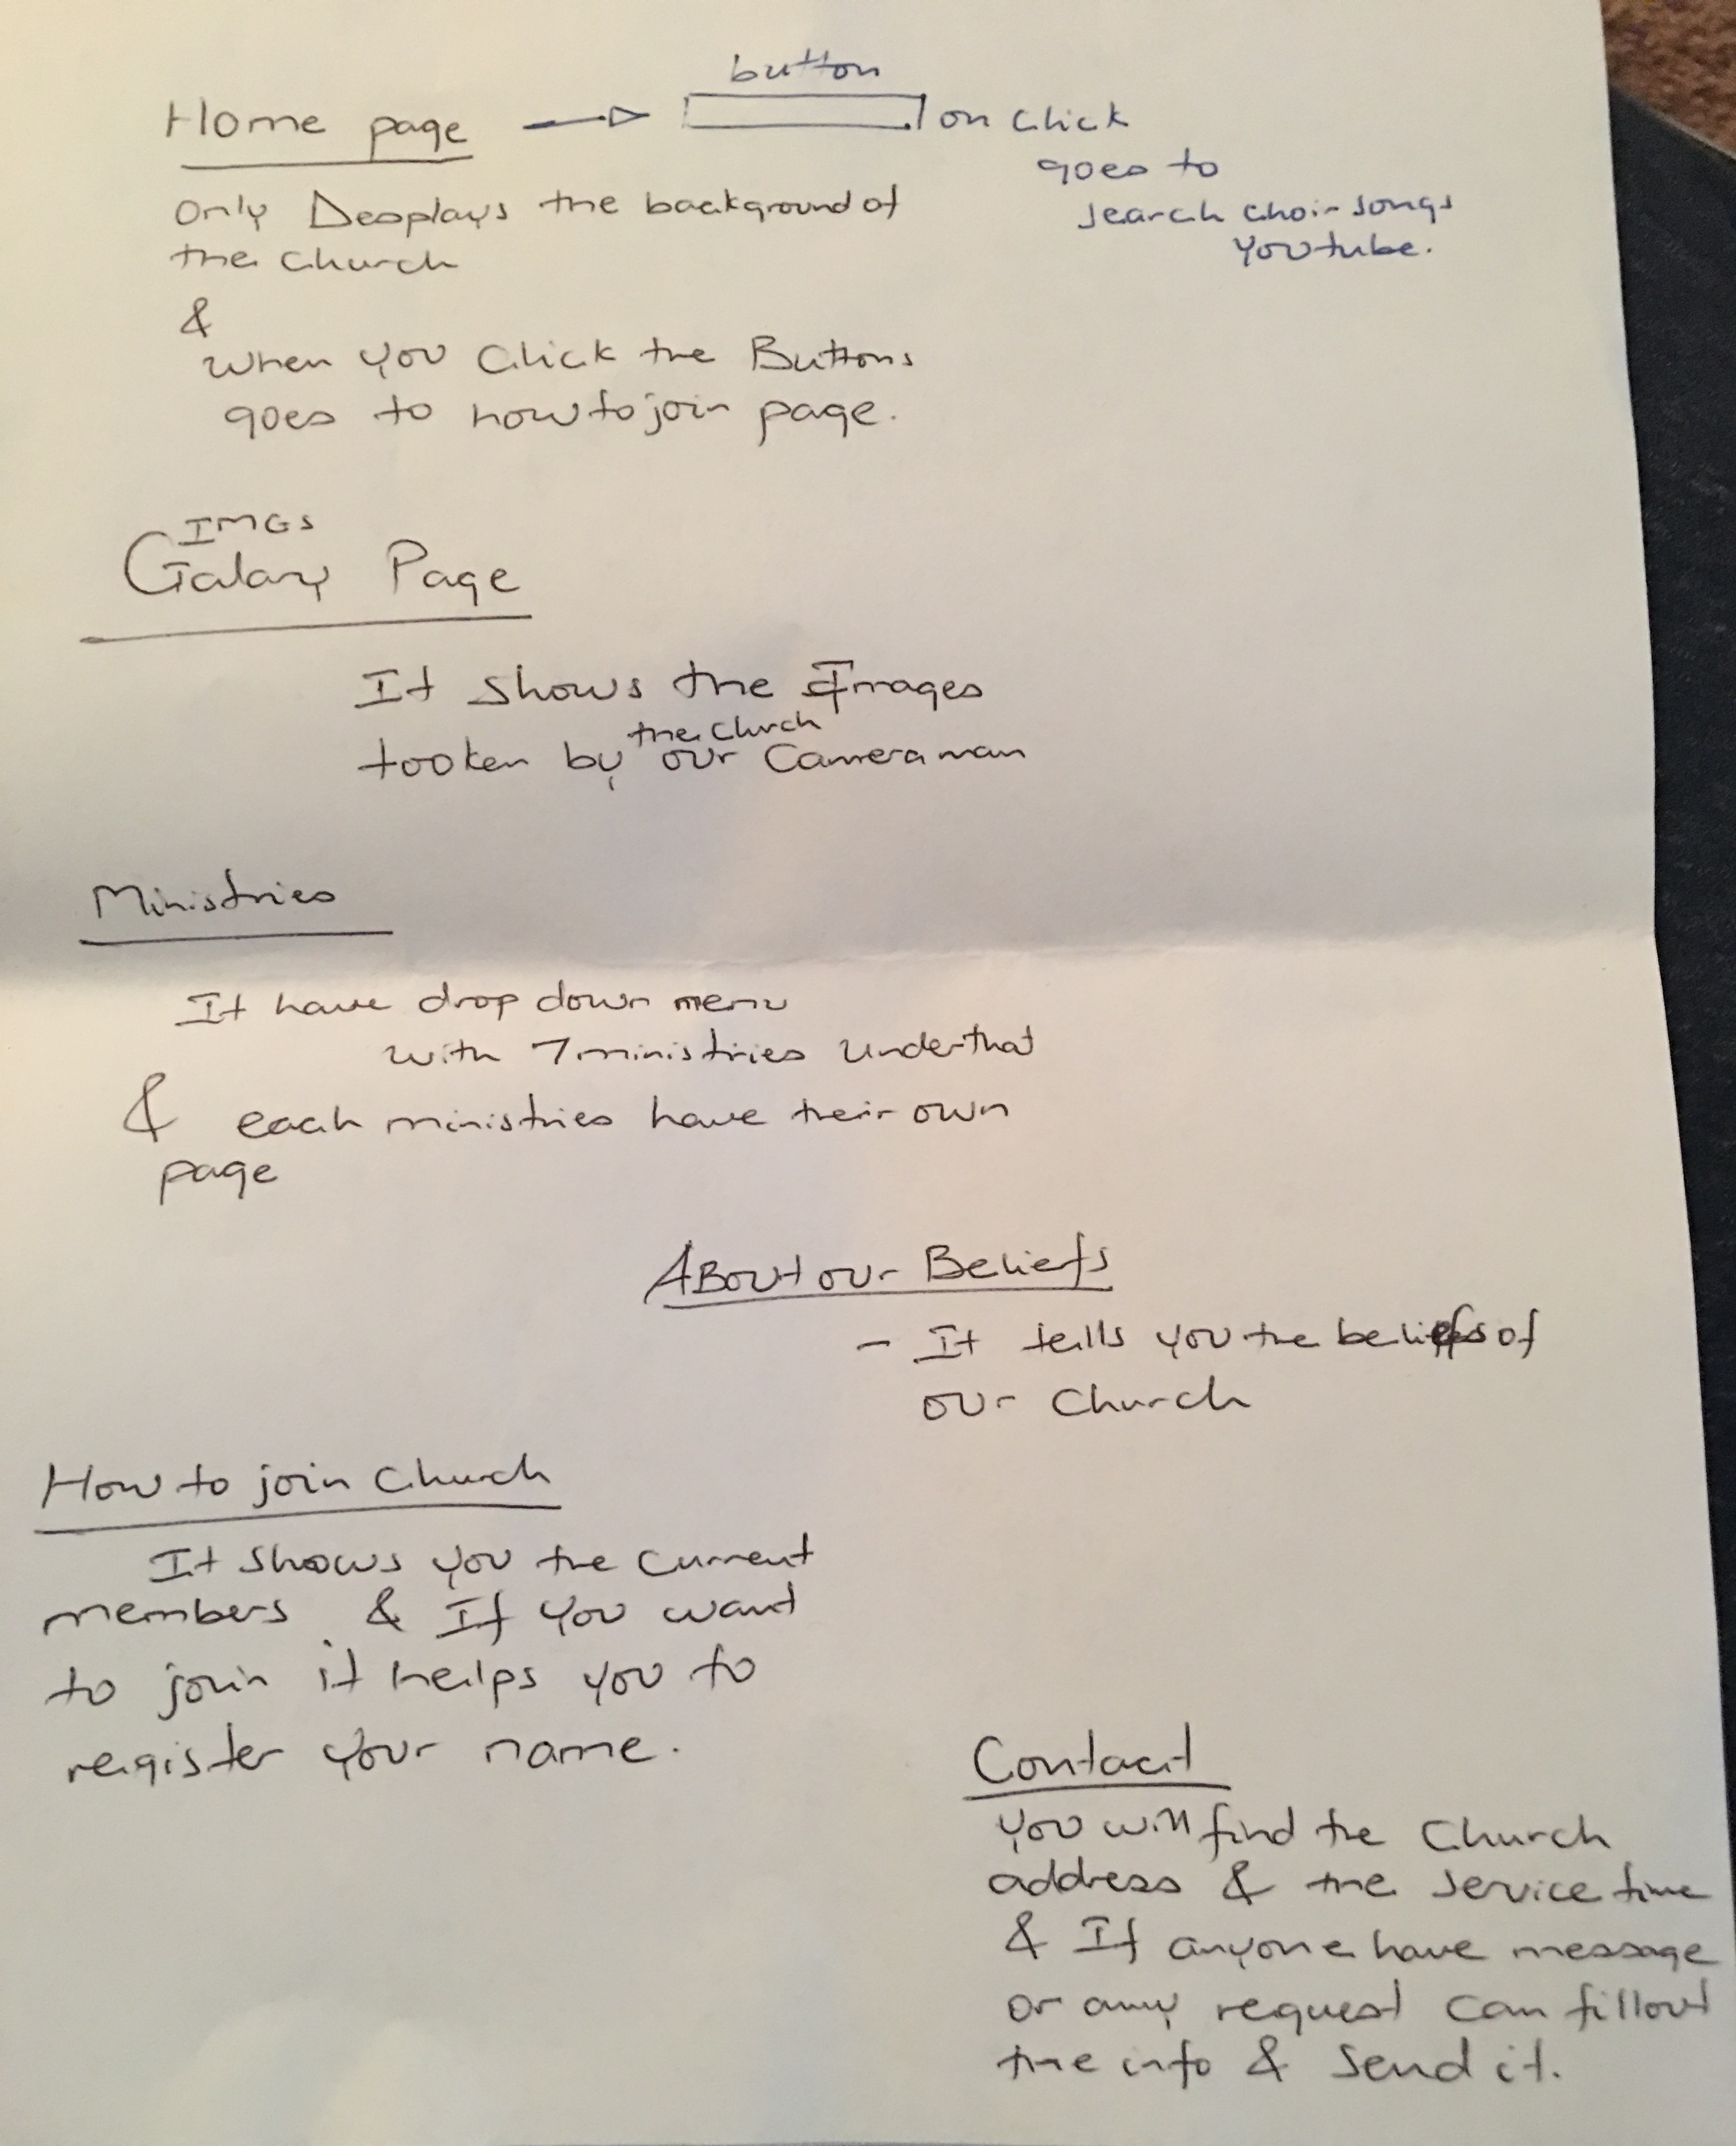 Home page → button on click
goes to
search choir songs
youtube.
only Desplays the background of
the church
&
when you Click the Buttons
goes to how to join page.
IMGs
Galary Page
It shows the Images
tooken by the church our Camera man
Ministries
It have drop down menu
with 7 ministries under that
& each ministries have their own
page
About our Beliefs
- It tells you the beliefs of
our church
How to join church
It shows you the current
members & If you want
to join it helps you to
register your name.
Contact
you will find the Church
address & the service time
& If anyone have message
or any request can fillout
the info & send it.